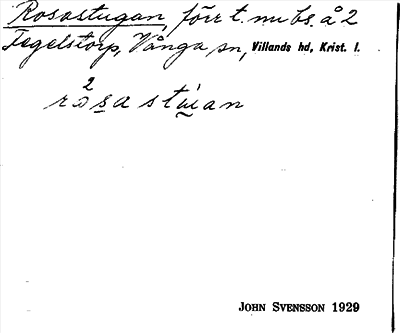 Rosastugan, förr t. nu bs. å 2
Tegelstorp, Vånga sn, Villands hd, Krist. l.
2
rosa stuan
JOHN SVENSSON 1929